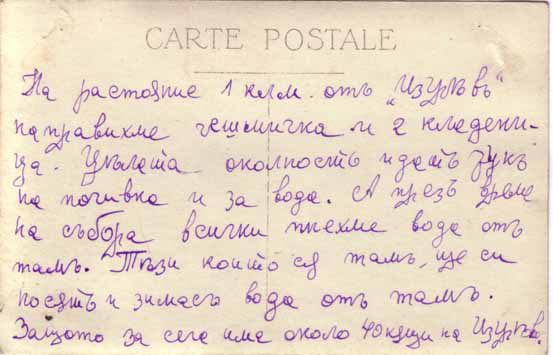 CARTE POSTALE
На растояние 1 клм. отъ „Изгрѣвъ“
направихме чешмичка и 2 кладене-
ца. Цѣлата околность идатъ тукъ
на почивка и за вода. А презъ време
на събора всички пиехме вода отъ
тамъ. Тѣзи които сѫ тамъ, ще си
носятъ и зимасъ вода отъ тамъ.
Защото за сега има около 40 кѫщи на Изгрѣвъ.